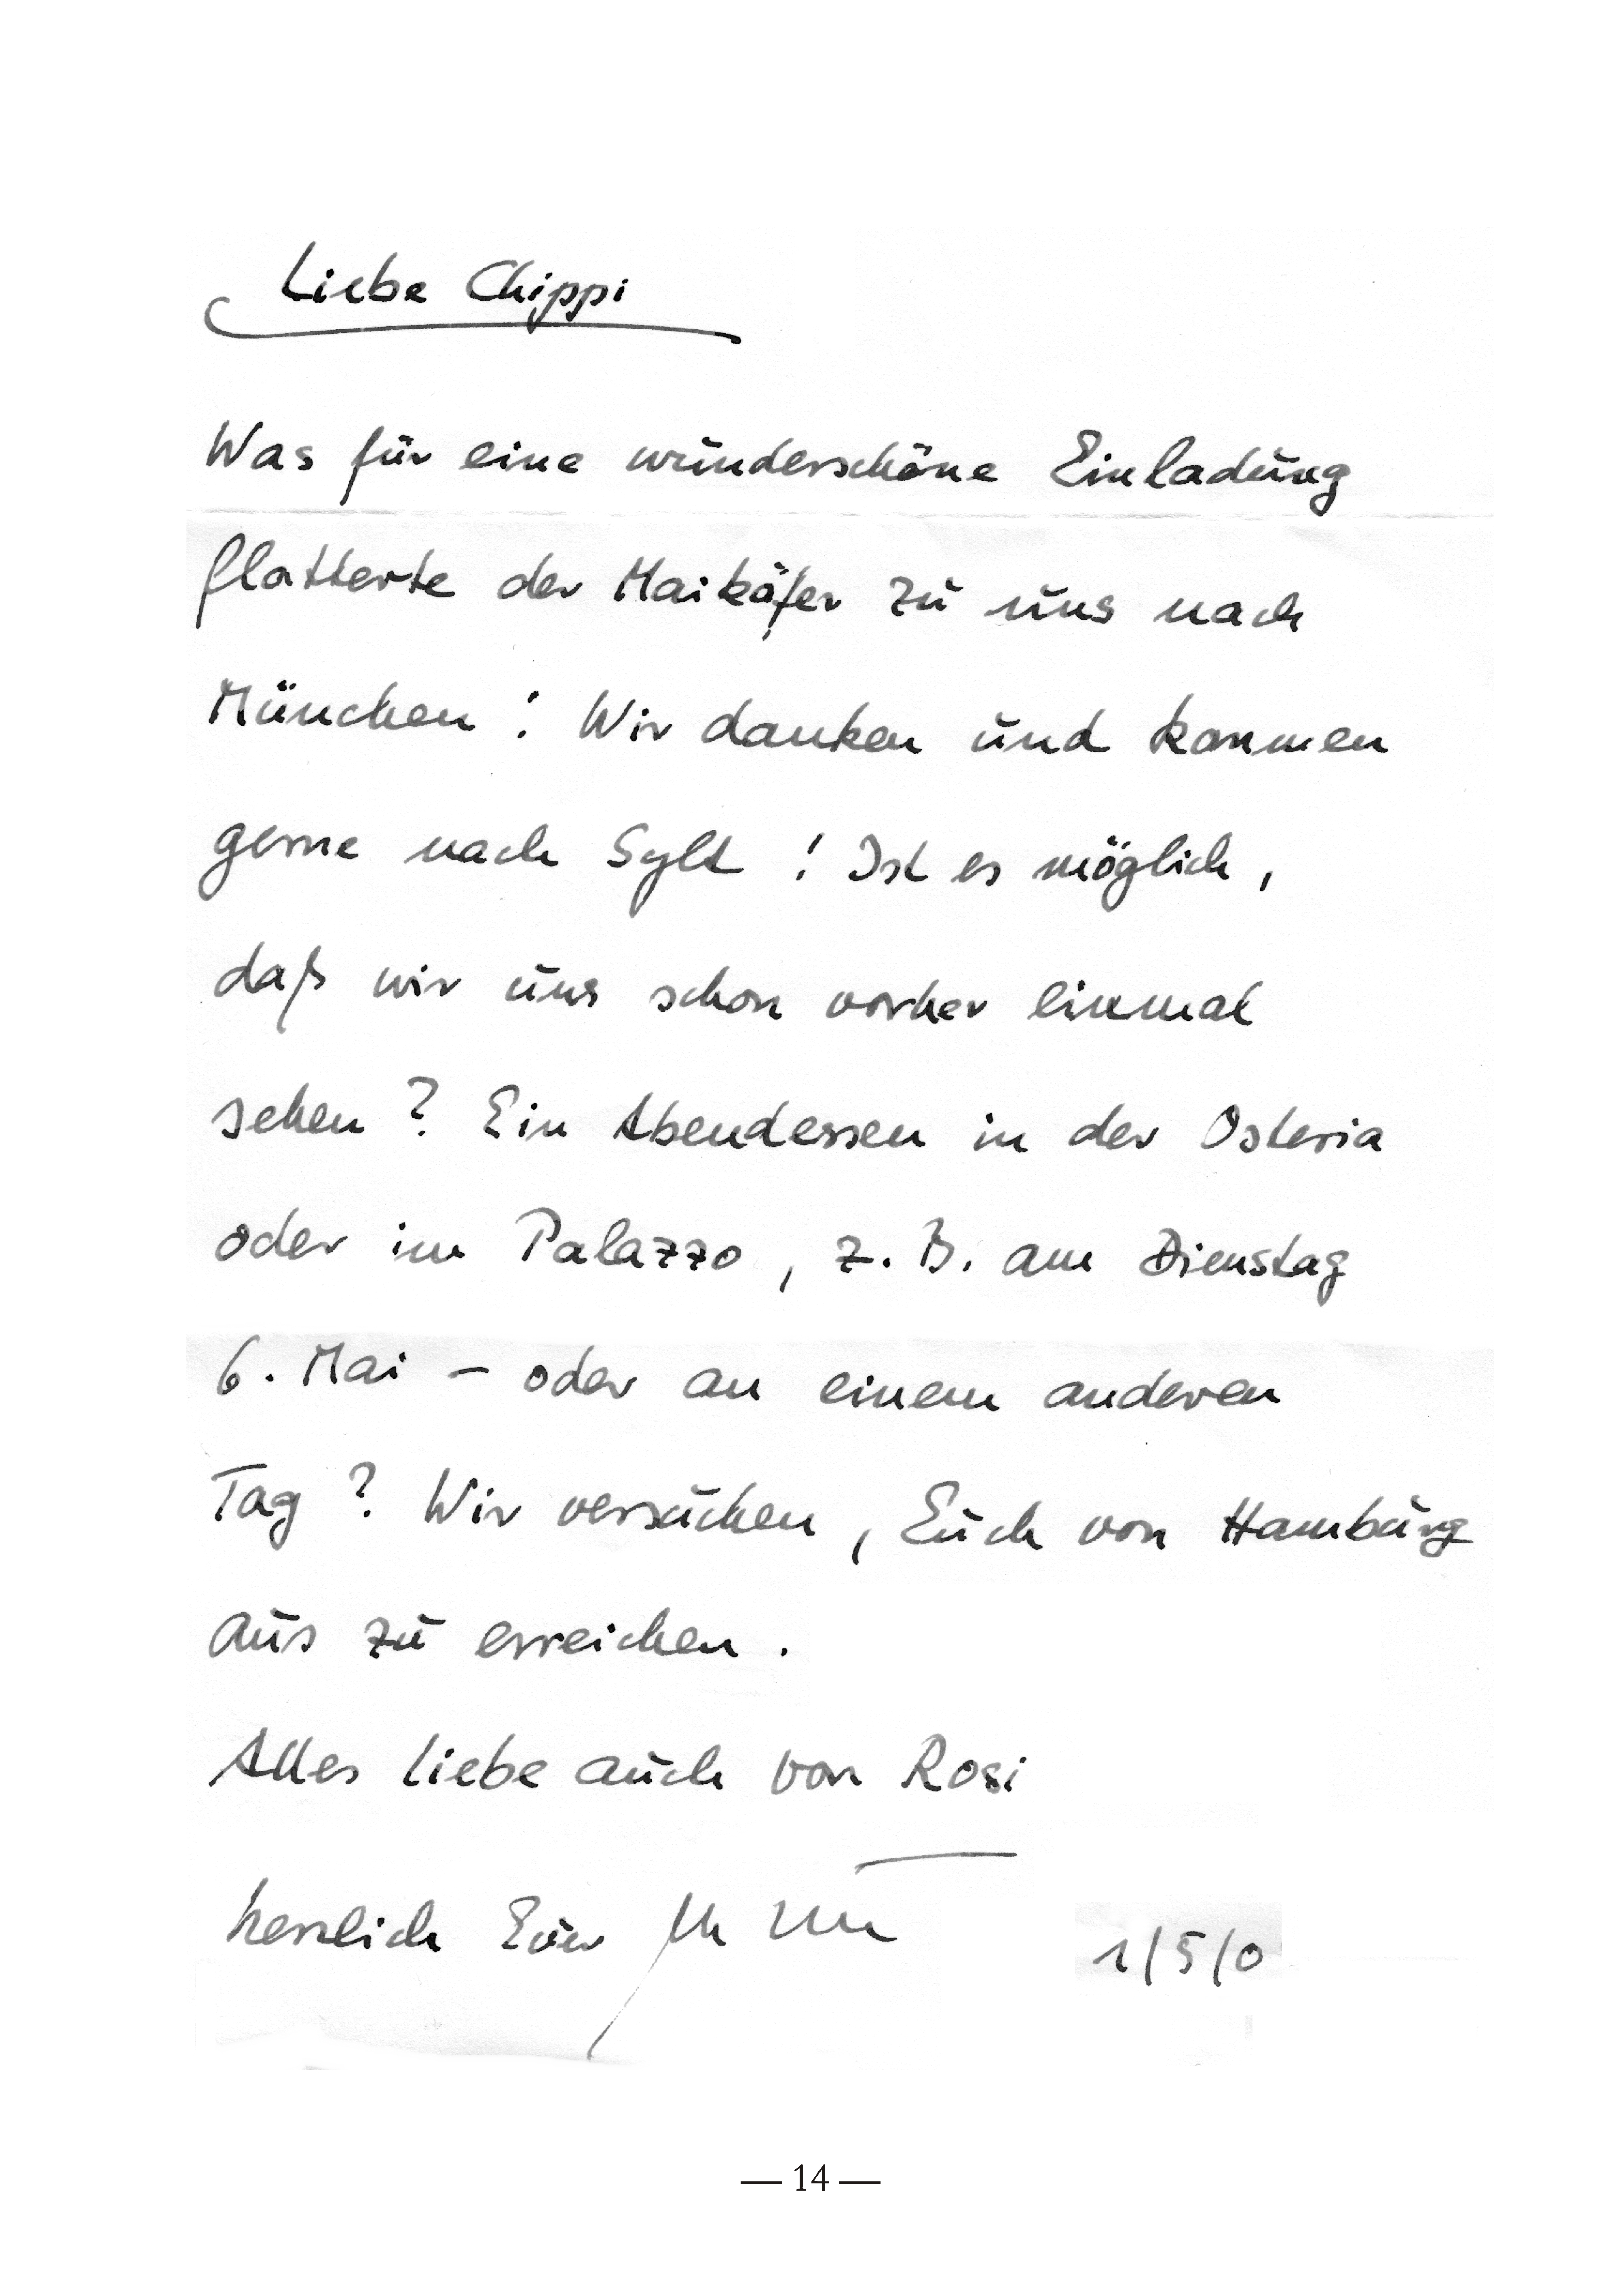 Liebe Chippi
Was für eine wunderschöne Einladung
flatterte der Maikäfer zu uns nach
München! Wir danken und kommen
gerne nach Sylt! Ist es möglich,
daß wir uns schon vorher einmal
sehen? Ein Abendessen in der Osteria
oder im Palazzo, z. B. am Dienstag
6. Mai – oder an einem anderen
Tag? Wir versuchen, Euch von Hamburg
aus zu erreichen.
Alles Liebe auch von Rosi
herzlich Euer
1/5/0
— 14 —